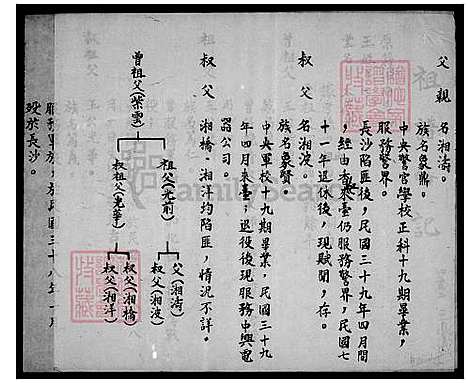 父親 名湘濤。
族名象鼎。
中央警官學校正科十九期畢業，
服務警界。
長沙陷匪後，民國三十九年四月間
，經由香來臺仍服務警界，民國七
十一年退休後，現賦閒，存。
叔父 名湘波。
族名象賢。
中央軍校十九期畢業，民國三十九
年四月來臺；退役後現服務中興電
器公司。
叔父 湘橋、湘洋均陷匪，情況不詳。
曾祖父(紫雲)
祖父(光前)
叔祖父(光華)
父(湘濤)
叔父(湘波)
叔父(湘橋)
叔父(湘洋)
服務軍旅，於民國三十八年一月
歿於長沙。